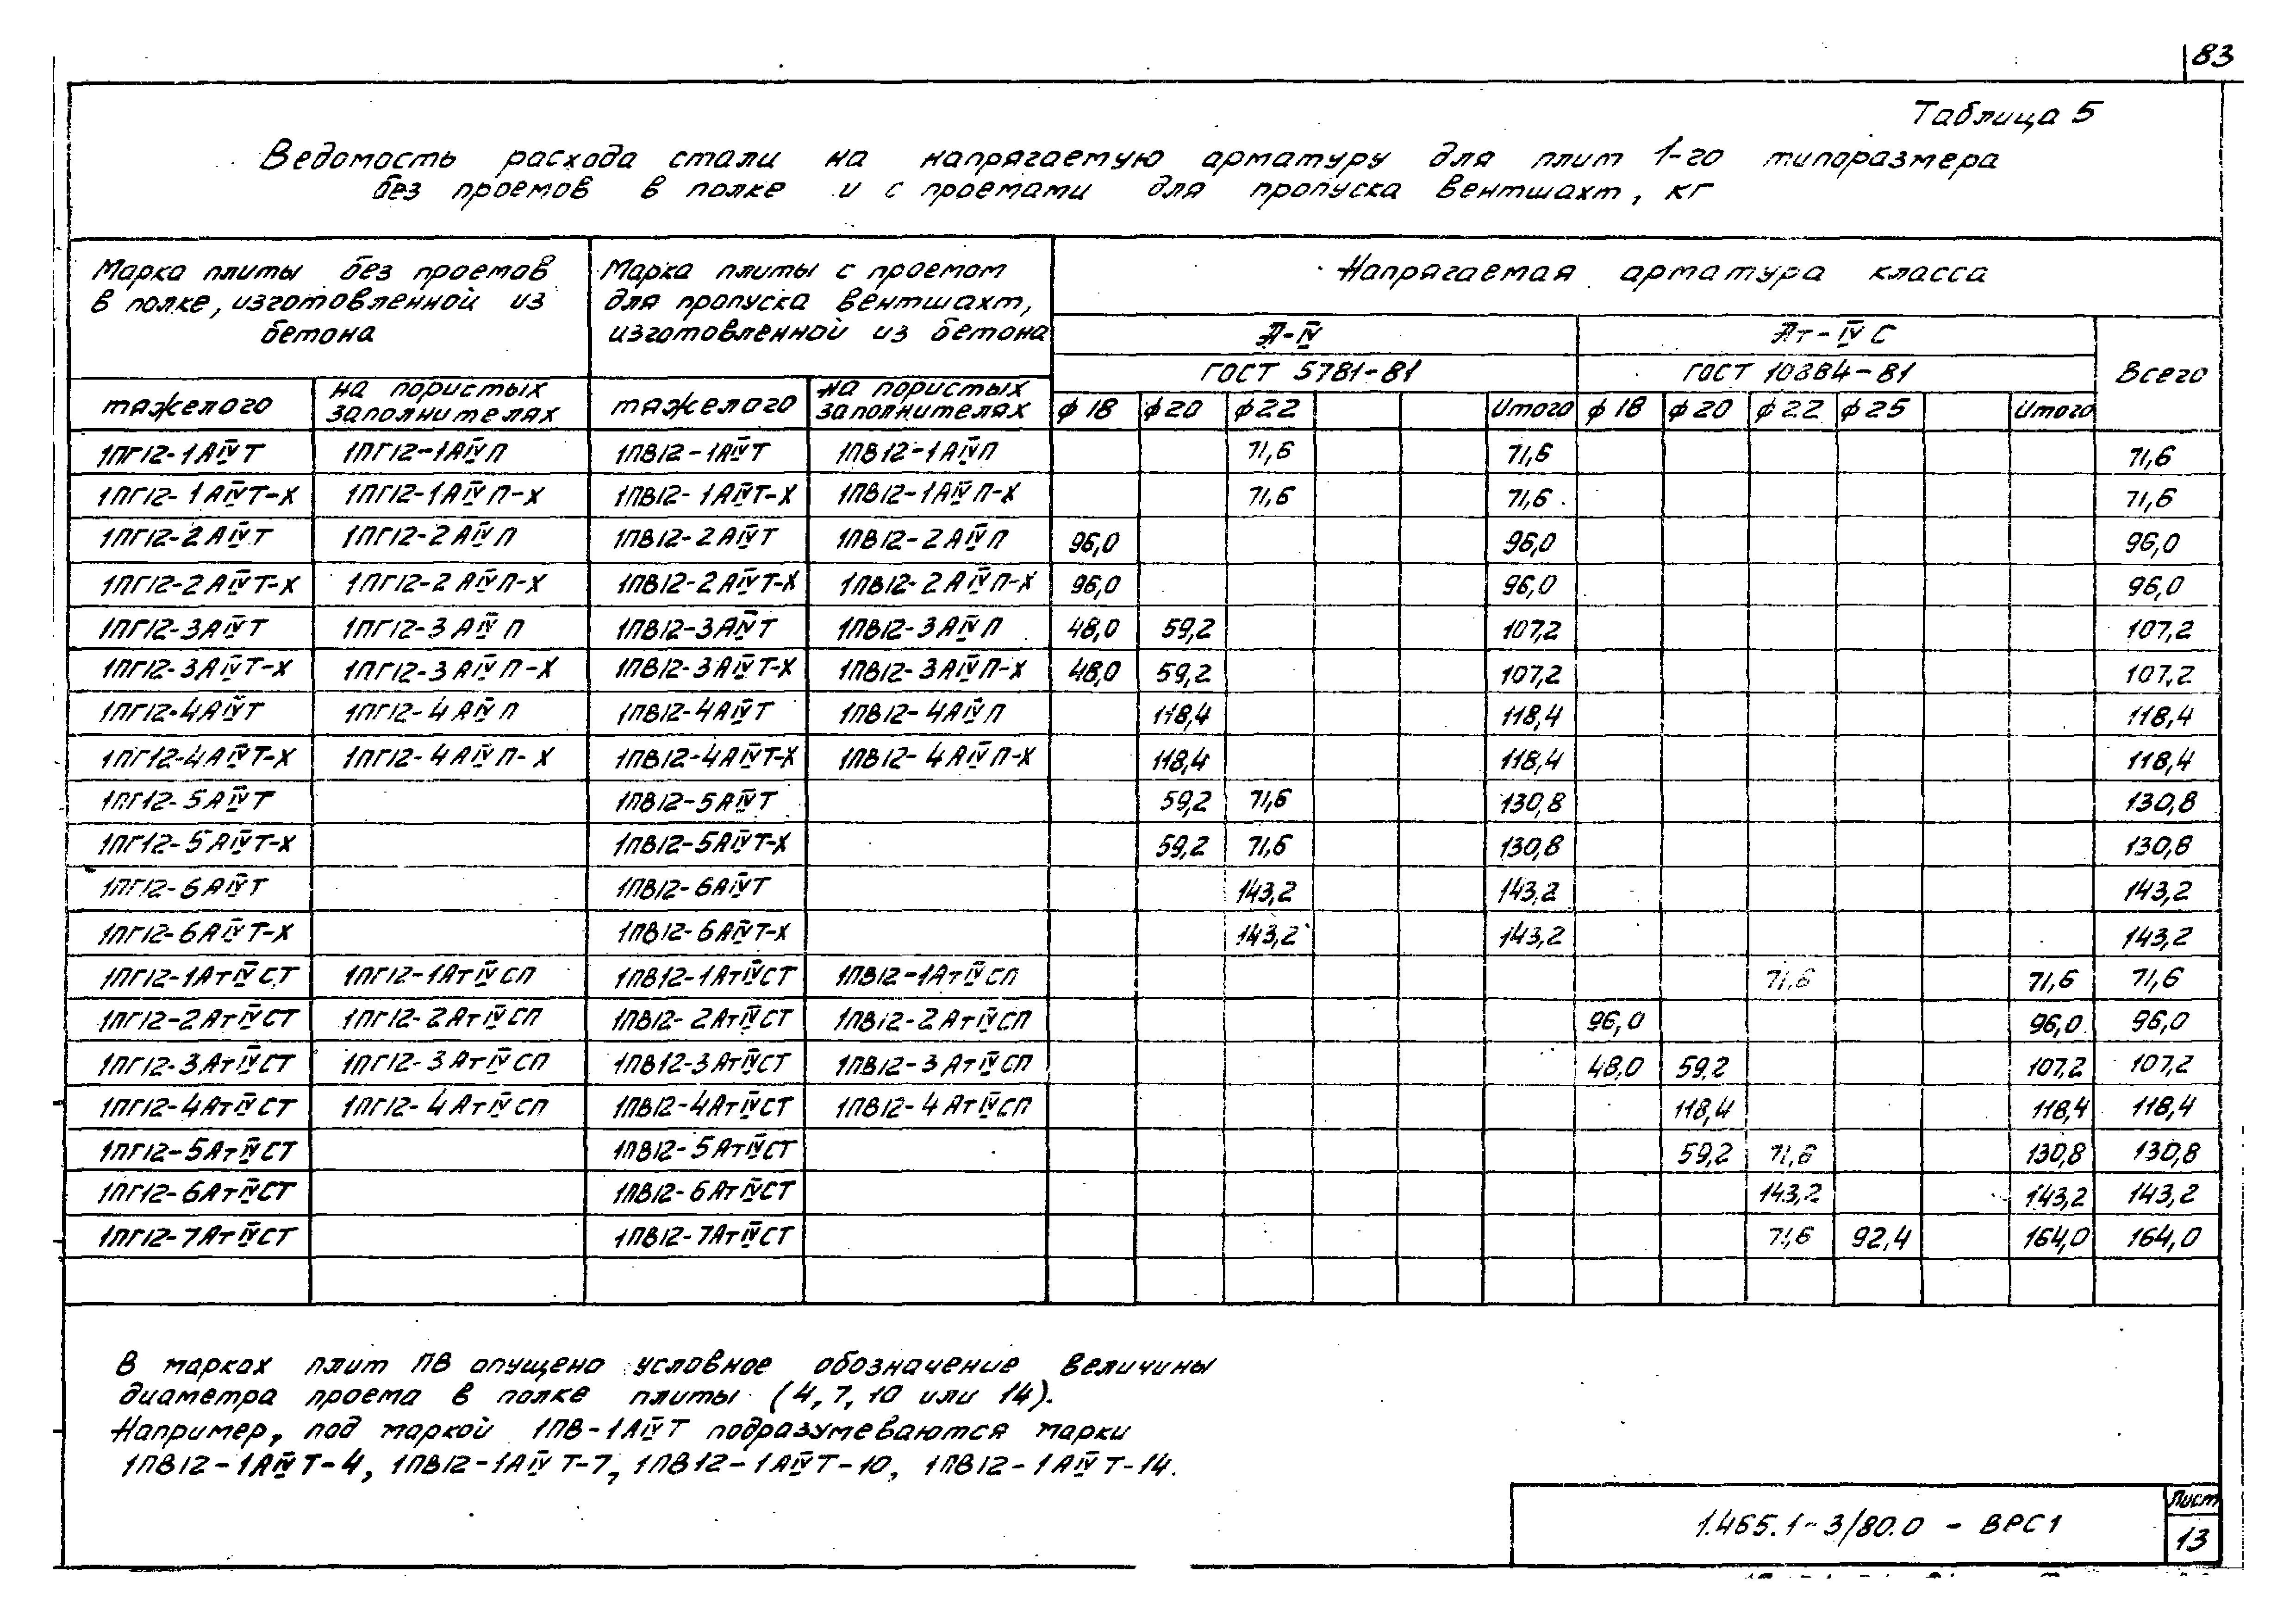 83
Таблица 5
Ведомость расхода стали на напрягаемую арматуру для плит 1-го типоразмера
без проемов в полке и с проемами для пропуска вентшахт, кг
Марка плиты без проемов
в полке, изготовленной из
бетона
Марка плиты с проемом
для пропуска вентшахт,
изготовленной из бетона
Напрягаемая арматура класса
А-IV Ат-IVС
ГОСТ 5781-81 ГОСТ 10884-81 Всего
тяжелого на пористых заполнителях тяжелого на пористых заполнителях ф18 ф20 ф22 Итого ф18 ф20 ф22 ф25 Итого
1ПГ12-1АIVТ 1ПГ12-1АIVП 1ПВ12-1АIVТ 1ПВ12-1АIVП 71,6 71,6 71,6
1ПГ12-1АIVТ-Х 1ПГ12-1АIVП-Х 1ПВ12-1АIVТ-Х 1ПВ12-1АIVП-Х 71,6 71,6 71,6
1ПГ12-2АIVТ 1ПГ12-2АIVП 1ПВ12-2АIVТ 1ПВ12-2АIVП 96,0 96,0 96,0
1ПГ12-2АIVТ-Х 1ПГ12-2АIVП-Х 1ПВ12-2АIVТ-Х 1ПВ12-2АIVП-Х 96,0 96,0 96,0
1ПГ12-3АIVТ 1ПГ12-3АIVП 1ПВ12-3АIVТ 1ПВ12-3АIVП 48,0 59,2 107,2 107,2
1ПГ12-3АIVТ-Х 1ПГ12-3АIVП-Х 1ПВ12-3АIVТ-Х 1ПВ12-3АIVП-Х 48,0 59,2 107,2 107,2
1ПГ12-4АIVТ 1ПГ12-4АIVП 1ПВ12-4АIVТ 1ПВ12-4АIVП 118,4 118,4 118,4
1ПГ12-4АIVТ-Х 1ПГ12-4АIVП-Х 1ПВ12-4АIVТ-Х 1ПВ12-4АIVП-Х 118,4 118,4 118,4
1ПГ12-5АIVТ 1ПВ12-5АIVТ 59,2 71,6 130,8 130,8
1ПГ12-5АIVТ-Х 1ПВ12-5АIVТ-Х 59,2 71,6 130,8 130,8
1ПГ12-6АIVТ 1ПВ12-6АIVТ 143,2 143,2 143,2
1ПГ12-6АIVТ-Х 1ПВ12-6АIVТ-Х 143,2 143,2 143,2
1ПГ12-1АтIVСТ 1ПГ12-1АтIVСП 1ПВ12-1АтIVСТ 1ПВ12-1АтIVСП 71,6 71,6 71,6
1ПГ12-2АтIVСТ 1ПГ12-2АтIVСП 1ПВ12-2АтIVСТ 1ПВ12-2АтIVСП 96,0 96,0 96,0
1ПГ12-3АтIVСТ 1ПГ12-3АтIVСП 1ПВ12-3АтIVСТ 1ПВ12-3АтIVСП 48,0 59,2 107,2 107,2
1ПГ12-4АтIVСТ 1ПГ12-4АтIVСП 1ПВ12-4АтIVСТ 1ПВ12-4АтIVСП 118,4 118,4 118,4
1ПГ12-5АтIVСТ 1ПВ12-5АтIVСТ 59,2 71,6 130,8 130,8
1ПГ12-6АтIVСТ 1ПВ12-6АтIVСТ 143,2 143,2 143,2
1ПГ12-7АтIVСТ 1ПВ12-7АтIVСТ 71,6 92,4 164,0 164,0
В марках плит ПВ опущено условное обозначение величины
диаметра проема в полке плиты (4, 7, 10 или 14).
Например, под маркой 1ПВ-1АIVТ подразумеваются марки
1ПВ12-1АIVТ-4, 1ПВ12-1АIVТ-7, 1ПВ12-1АIVТ-10, 1ПВ12-1АIVТ-14.
1.465.1-3/80.0 - ВРС1
Лист
13